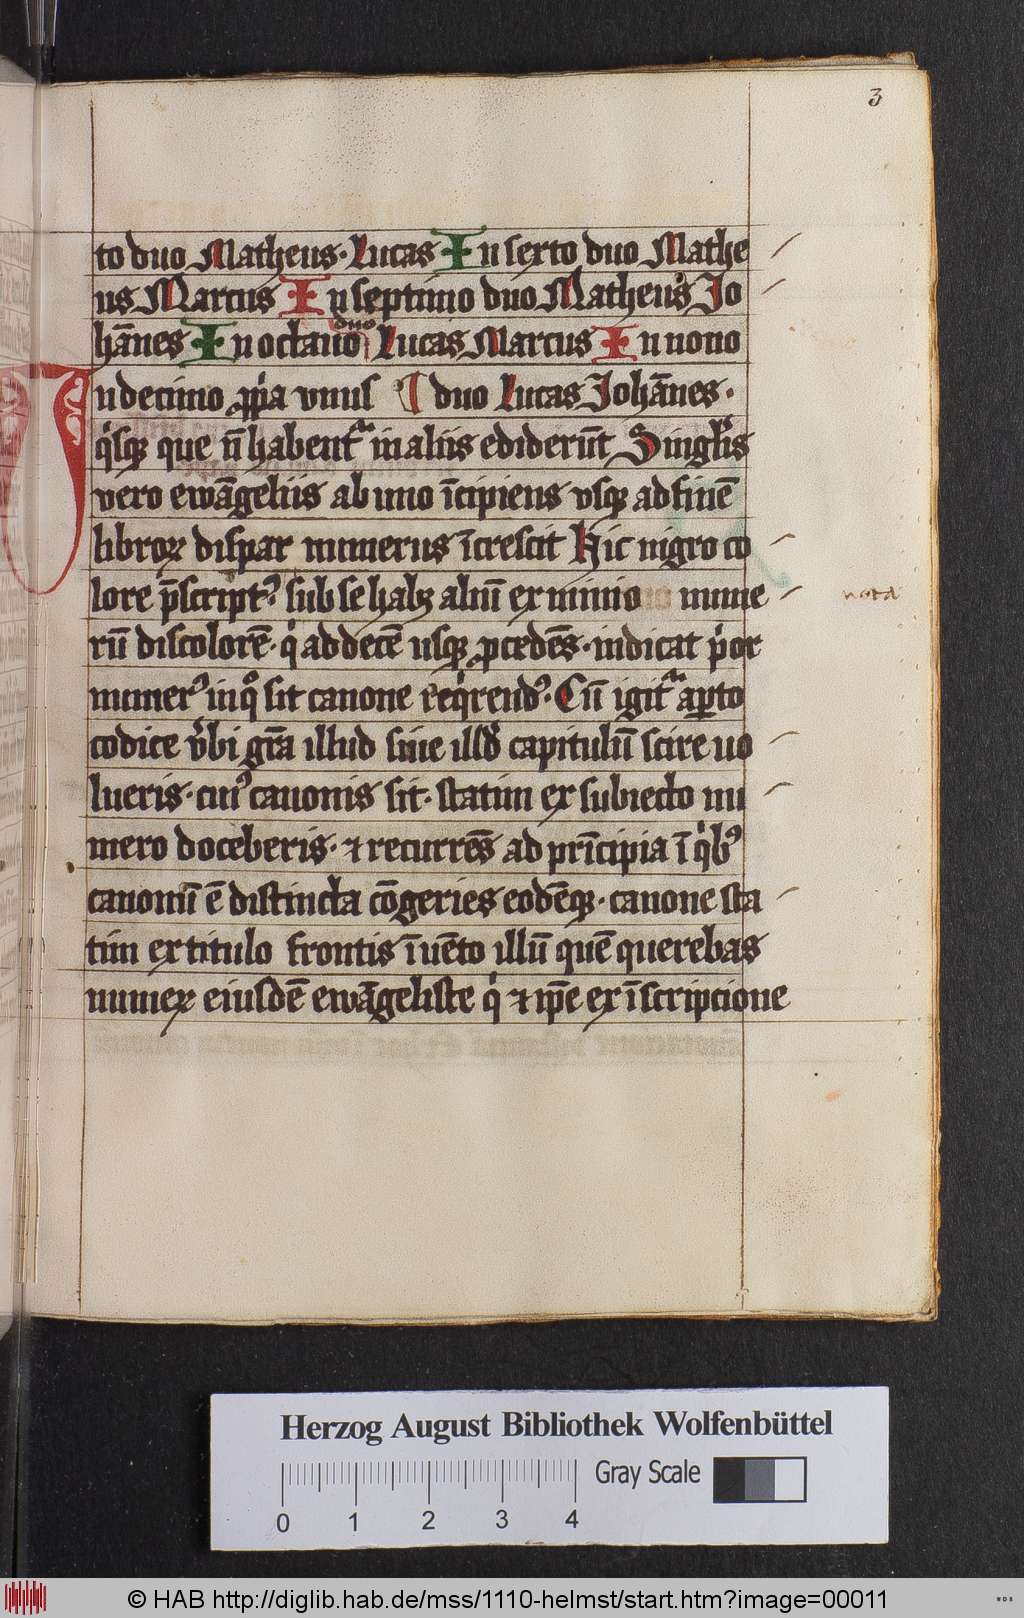 3
to duo Matheus· Lucas In sexto duo Mathe
us Marcus In septimo duo Matheus Jo
hānes In octauo duo Lucas Marcus In nono
Vndecimo ꝓp̄a vnus ¶ duo Lucas Johānes·
q̇sꝗ que n̄ habent᷑ in aliis ediderūt Singlis
vero ewāgeliis ab uno īcipiens vsꝗ ad finē
libroꝝ dispar numerus īcrescit Hic nigro co
lore p̄script᷒ sub se habꝫ aliū ex minio nume
nota
rū discolorē· q̇ ad decē usꝗ ꝓcedēs· indicat ṗor
numer᷒ in qͦ sit canone req̇rend᷒· Cū igit᷑ aꝑto
codice v̇bi gr̄a illud siue illd̓ capitulū scire uo
lueris· cui᷒ canonis sit· statim ex subiecto nu
mero doceberis· ⁊ recurrēs ad prīcipia ī q̇b᷒
canonū ē distincta cōgeries eodēꝗ· canone sta
tim ex titulo frontis īuēto illū quē querebas
numeꝝ eiusdē ewāgeliste q̇ ⁊ ip̄e ex īscripcione
Herzog August Bibliothek Wolfenbüttel
Gray Scale
0 1 2 3 4
© HAB http://diglib.hab.de/mss/1110-helmst/start.htm?image=00011